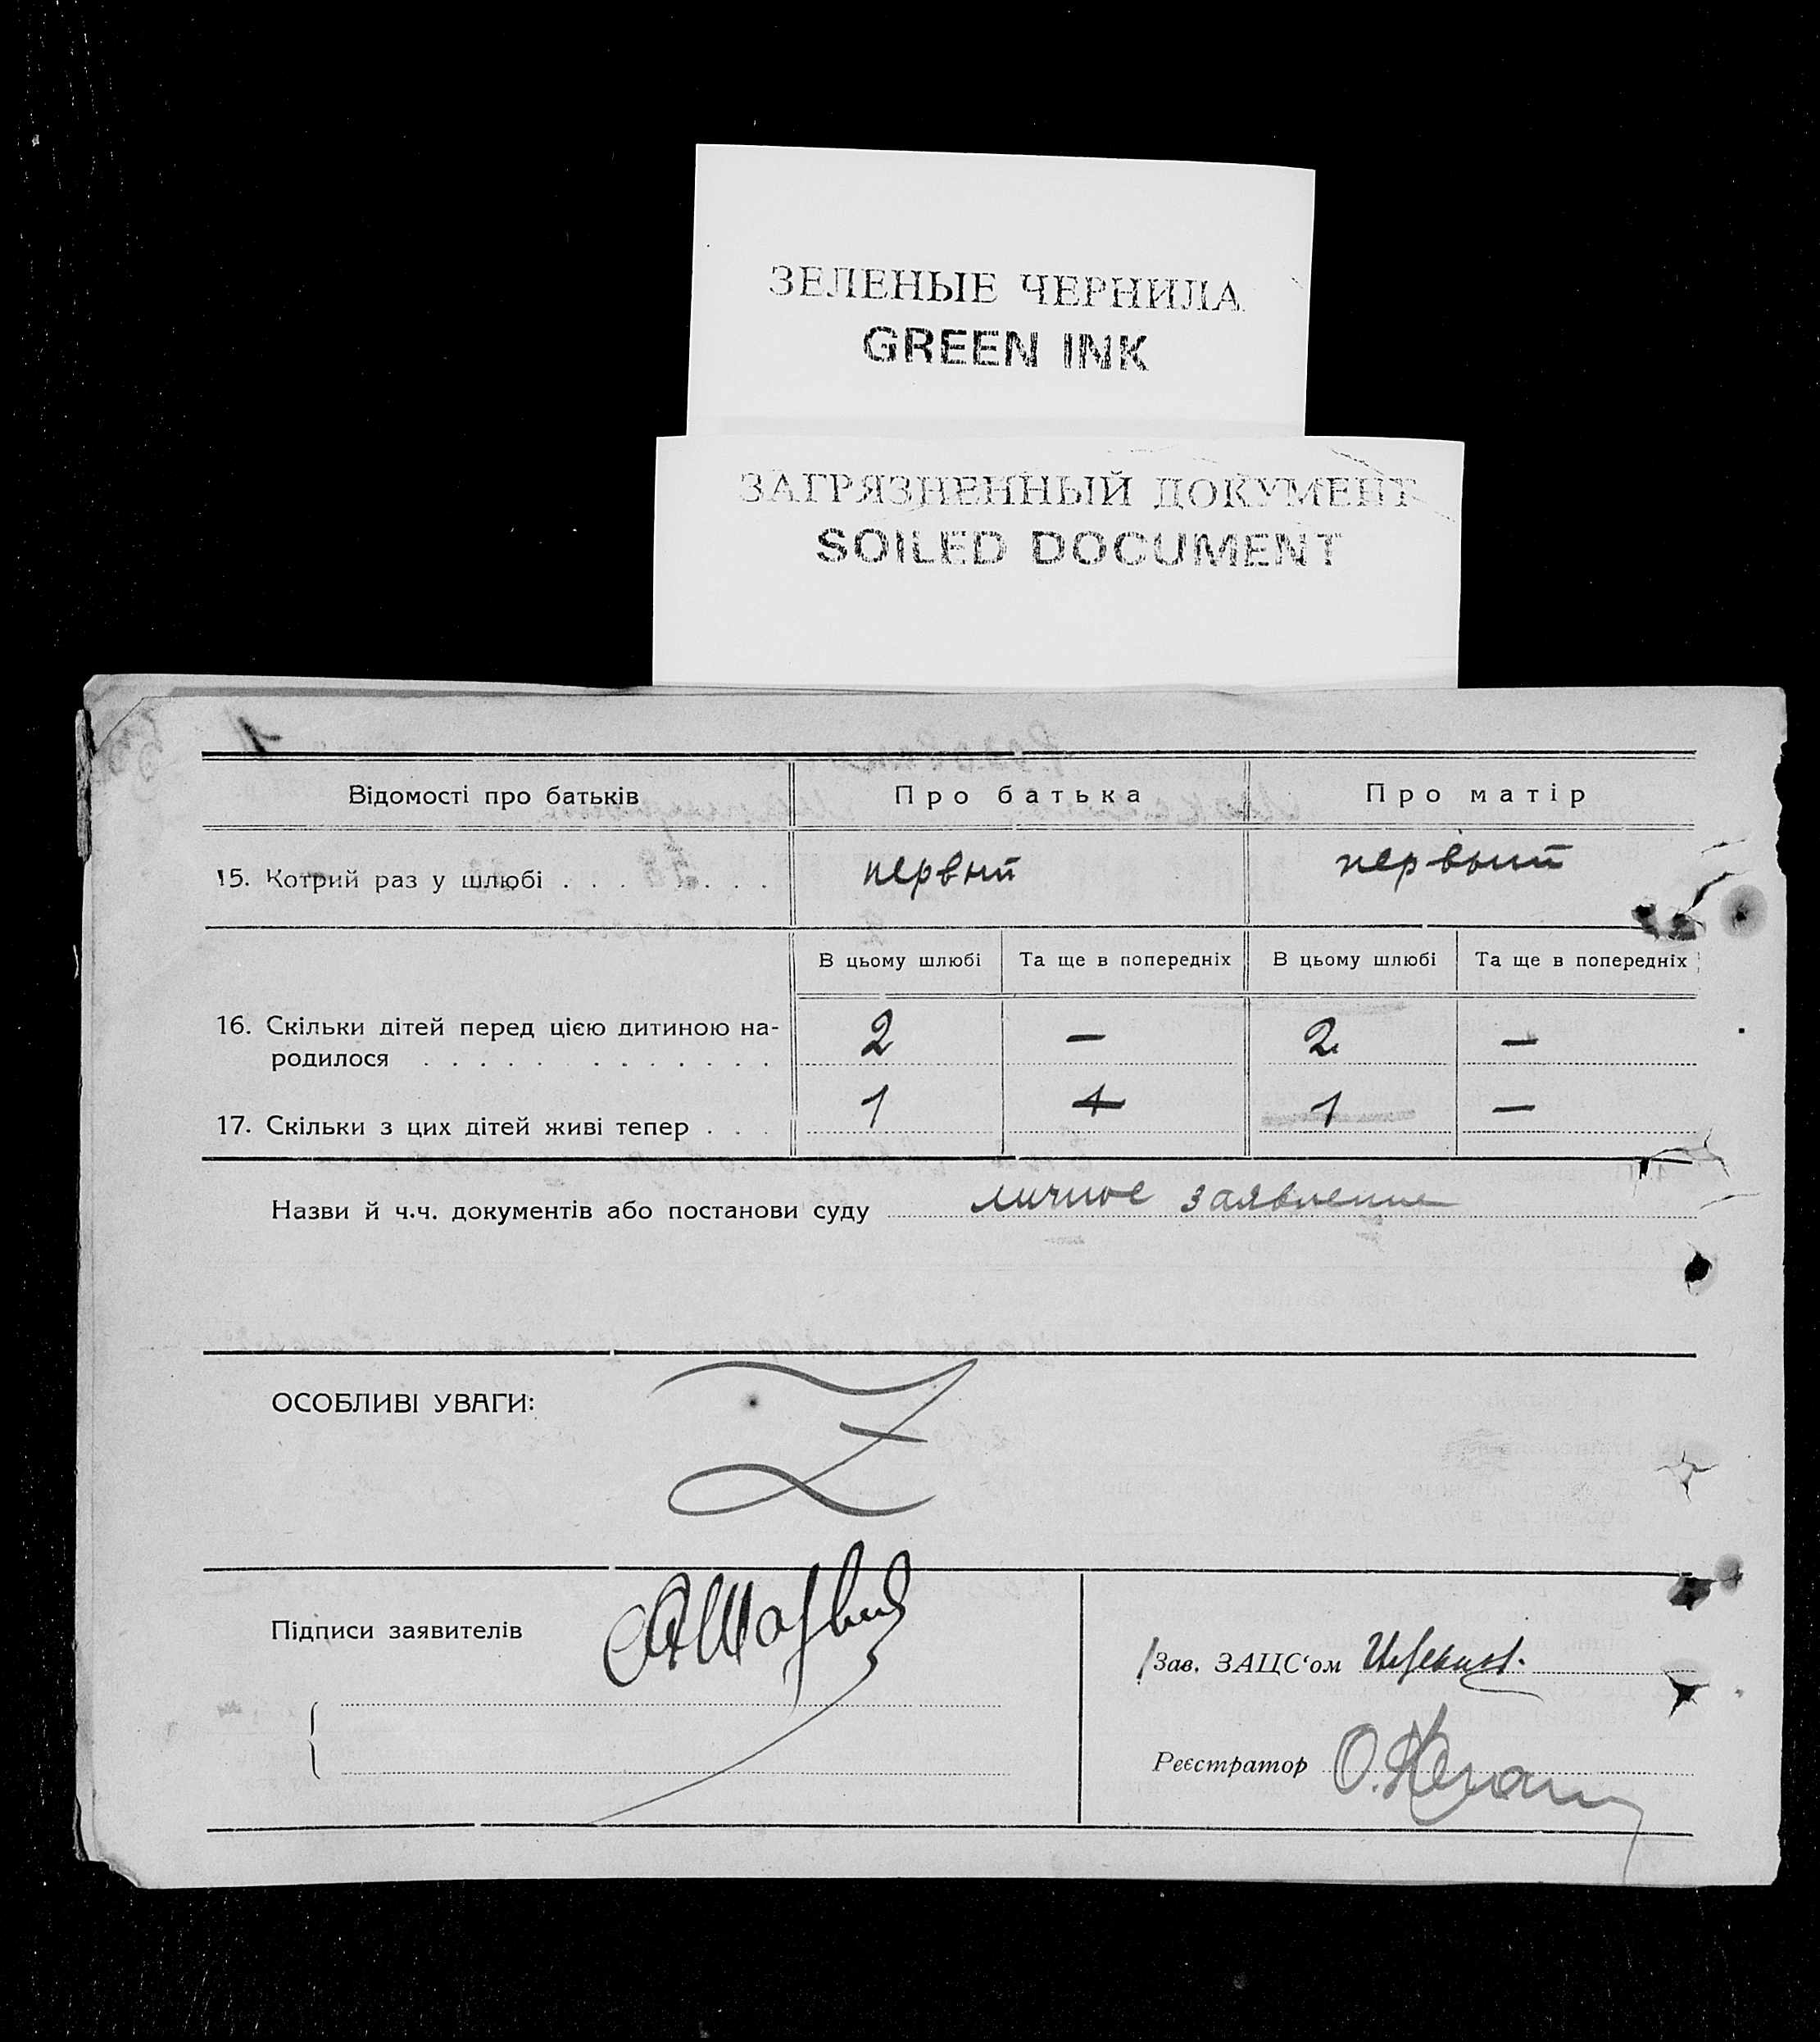 ЗЕЛЕНЫЕ ЧЕРНИЛА
GREEN INK
ЗАГРЯЗНЕННЫЙ ДОКУМЕНТ
SOILED DOCUMENT
Відомості про батьків Про батька Про матір
15. Котрий раз у шлюбі . . . . . . . . первый первый
В цьому шлюбі Та ще в попередніх В цьому шлюбі Та ще в попередніх
16. Скільки дітей перед цією дитиною на-
родилося . . . . . . . . . . . . . 2 — 2 —
17. Скільки з цих дітей живі тепер . . . 1 1 —
Назви й ч.ч. документів або постанови суду личное заявление
ОСОБЛИВІ УВАГИ: Z
Підписи заявителів
Зав. ЗАЦС‘ом
Реєстратор